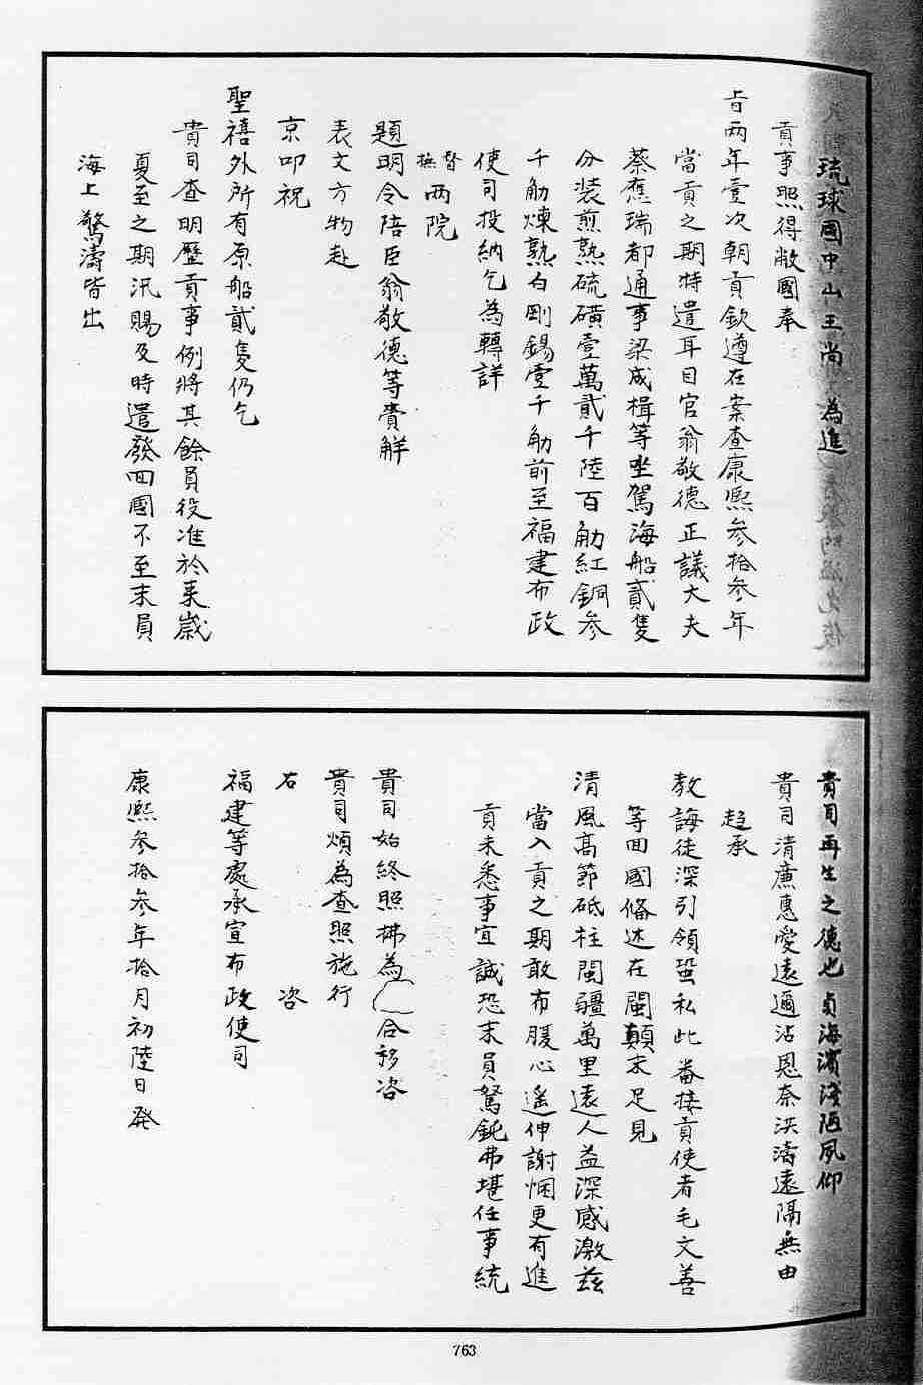 琉球國中山王尚 為進
貢事照得敝國奉
旨兩年壹次朝貢欽遵在案查康熙參拾參年
當貢之期特遣耳目官翁敬德正議大夫
蔡應瑞都通事梁成楫等坐駕海船貳隻
分裝煎熟硫磺壹萬貳千陸百觔紅銅參
千觔煉熟白剛錫壹千觔前至福建布政
使司投納乞為轉詳
督撫兩院
題明令陪臣翁敬德等賫觧
表文方物赴
京叩祝
聖禧外所有原船貳隻仍乞
貴司查明歷貢事例將其餘員役准於来歲
夏至之期汛賜及時遣發囬國不至末員
海上驚濤皆出
貴司再生之德也貞海濱淺陋夙仰
貴司清廉惠愛遠邇沾恩奈洪濤遠隔無由
趍承
教誨徒深引領蛩私此畨接貢使者毛文善
等囬國偹述在閩顛末足見
清風高節砥柱閩疆萬里遠人益深感激兹
當入貢之期敢布腹心遥伸謝悃更有進
貢未悉事宜誠恐末員駑鈍弗堪任事統
貴司始終照拂為 合移咨
貴司煩為查照施行
右 咨
福建等處承宣布政使司
康熙參拾參年拾月初陸日発
763